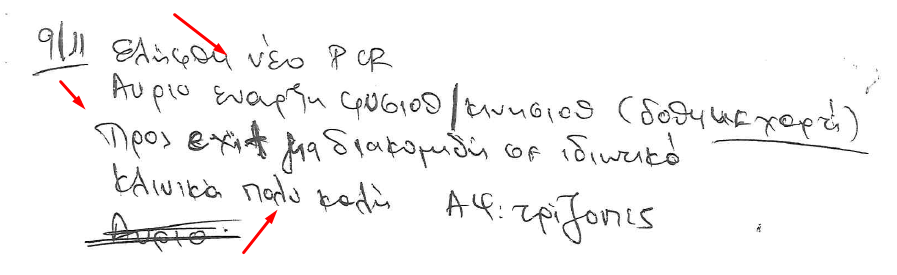 9/11 Ελήφθη νέο PCR
Αυριο εναρξη φυσιοθ/κινησιοθ (δοθηκε χαρτί)
Προς για διακομιδή σε ιδιωτικό
Κλινικά πολύ καλή ΑΨ: τρίζοντες
Αυριο